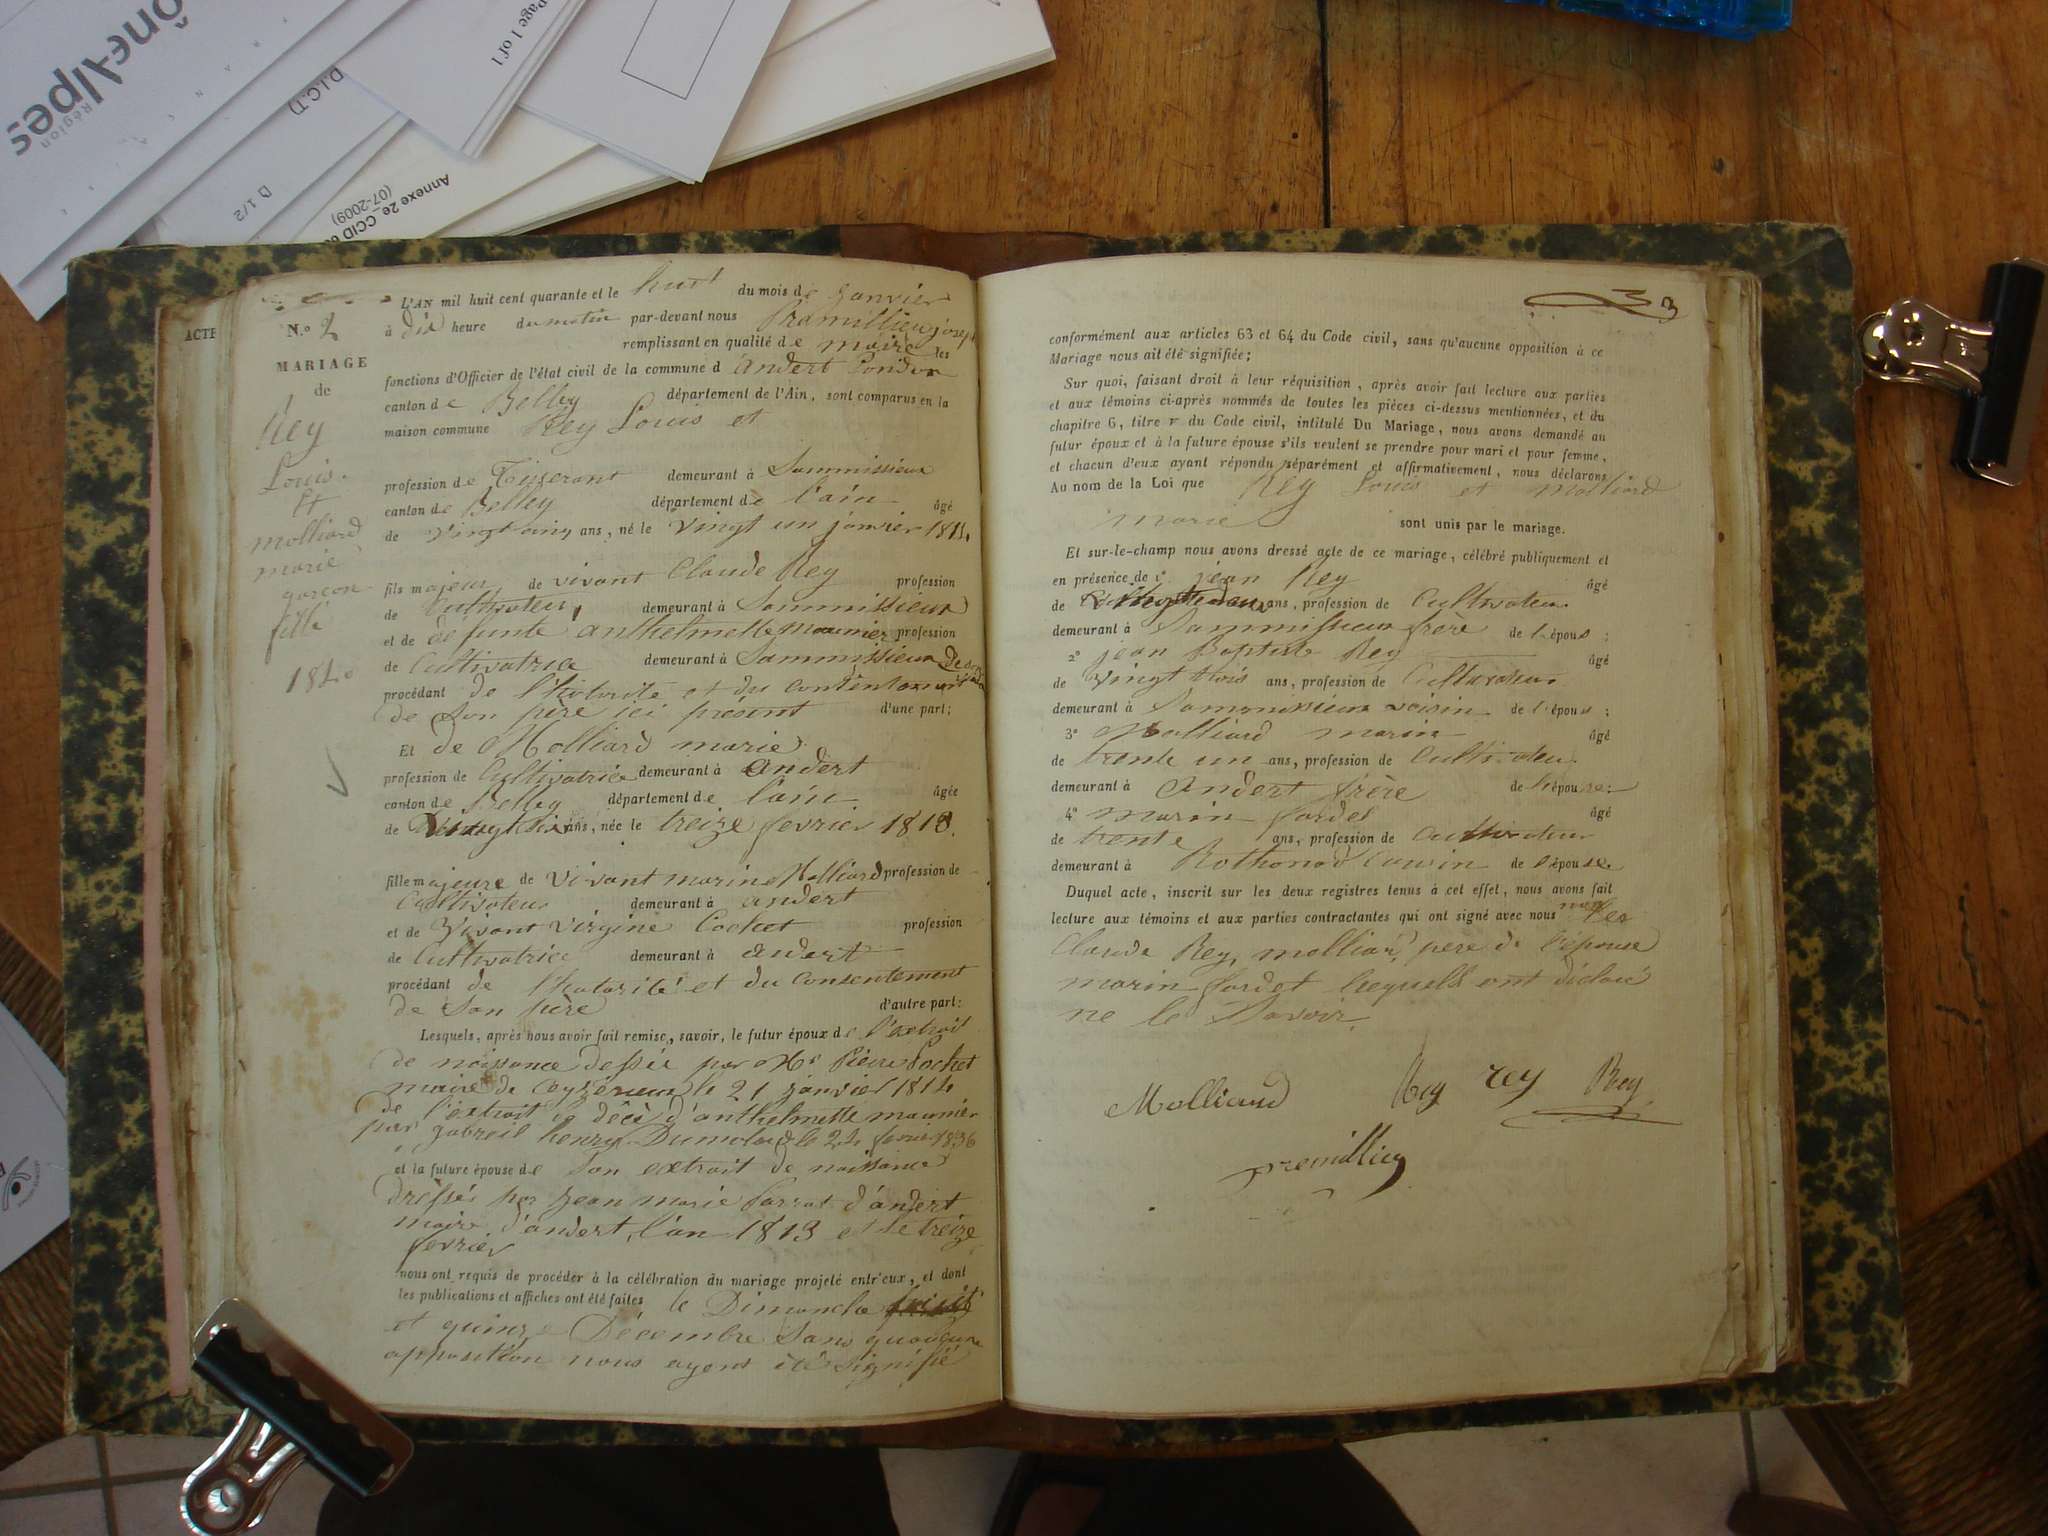 ôneAlpes
Région
Page 1 of 1
D.I.C.T)
D 1/2
Annexe 2e_CCID
(07-2009)
ACTE
N.o 2
MARIAGE
de
Rey
Louis.
Et
molliard
marie
garcon
fille
1840
L'AN mil huit cent quarante et le huit du mois de janvier
à dix heure du matin par-devant nous Pramillieu joseph
remplissant en qualité de maire les
fonctions d'Officier de l'état civil de la commune d andert Condon
canton de Belley département de l'Ain, sont comparus en la
maison commune Rey Louis et
profession de Tisserant demeurant à Sammissieux
canton de Belley département de l'ain âgé
de vingt cinq ans, né le vingt un janvier 1814.
fils majeur de vivant Claude Rey profession
de Cultivateur demeurant à Sammissieux
et de défunte anthelmette maunier profession
de Cultivatrice demeurant à Sammissieux
procédant de l'hotorité et du
de Son père ici présent d'une part;
Et de Molliard marie
profession de Cultivatrice demeurant à andert
canton de Belley département de l'ain âgée
de ans, née le treize fevrier 1813.
fille majeure de vivant marin Molliard profession de
Cultivateur demeurant à andert
et de vivant virgine Cochet profession
de Cultivatrice demeurant à andert
procédant de l'hotorité et du Consentement
de Son père d'autre part:
Lesquels, après nous avoir fait remise, savoir, le futur époux de l'extrait
de naissance dessée par Mr Pierre Cochet
maire de Ceyzerieux le 21 janvier 1814
de l'extrait de décè d'anthelmette maunier
par gabreil henry Dumolard le 24 fevrier 1836
et la future épouse de Son extrait de naissance
dressée par jean marie Parrat d'andert
maire d'andert, l'an 1813 et le treize
fevrier
nous ont requis de procéder à la célébration du mariage projeté entr'eux, et dont
les publications et affiches ont été faites le Dimanche
et quinze Décembre Sans quaucune
opposition nous ayent été Signifié
3
conformément aux articles 63 et 64 du Code civil, sans qu'aucune opposition à ce
Mariage nous ait été signifiée;
Sur quoi, faisant droit à leur réquisition, après avoir fait lecture aux parties
et aux témoins ci-après nommés de toutes les pièces ci-dessus mentionnées, et du
chapitre 6, titre v du Code civil, intitulé Du Mariage, nous avons demandé au
futur époux et à la future épouse s'ils veulent se prendre pour mari et pour femme,
et chacun d'eux ayant répondu séparément et affirmativement, nous déclarons
Au nom de la Loi que Rey Louis et Molliard
marie sont unis par le mariage.
Et sur-le-champ nous avons dressé acte de ce mariage, célébré publiquement et
en présence de 1o jean Rey âgé
de ans, profession de Cultivateur
demeurant à Sammissieux frère de l'époux;
2o jean Baptiste Rey âgé
de vingt trois ans, profession de Cultivateur
demeurant à Sammissieux voisin de l'époux;
3o Molliard marin âgé
de trente un ans, profession de Cultivateur
demeurant à Andert frère de l'épouse;
4o marin fardet âgé
de trente ans, profession de Cultivateur
demeurant à Rothonod Cousin de l'épouse
Duquel acte, inscrit sur les deux registres tenus à cet effet, nous avons fait
lecture aux témoins et aux parties contractantes qui ont signé avec nous non les
Claude Rey, molliard père de l'épouse
marin fardet lequels ont déclaré
ne le Savoir.
Molliard Rey rey Rey
premillieu